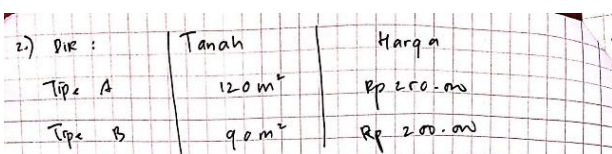 2.) DIK : Tanah Harga
Tipe A 120 m² Rp 250.000
Tipe B 90 m² Rp 200.000